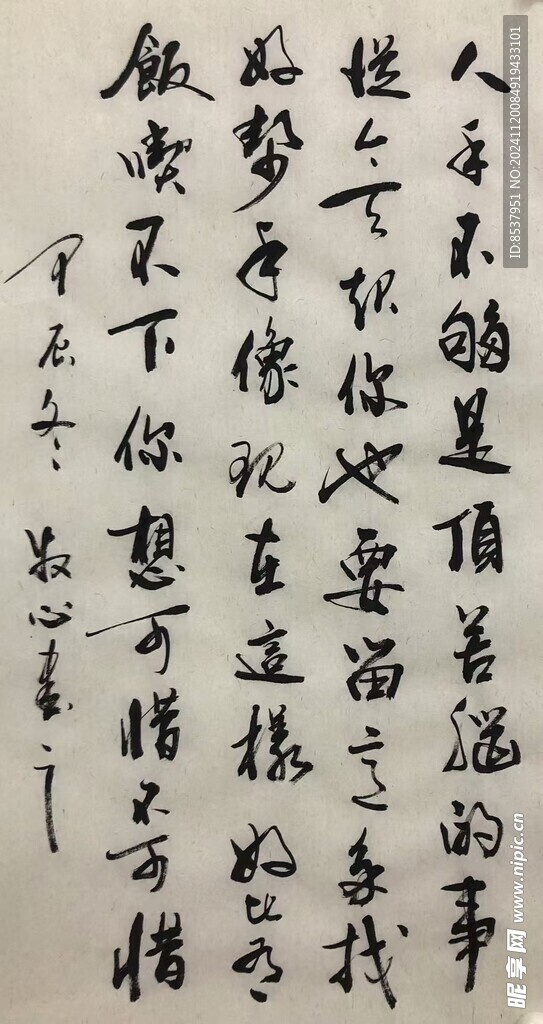 人手不够是頂苦惱的事
從今天起你也要留意多找
好幫手像現在這樣好比有
飯喫不下你想可惜不可惜
甲辰冬 牧心書
ID:8537951 NO:20241120084919433101
昵享网 www.nipic.cn